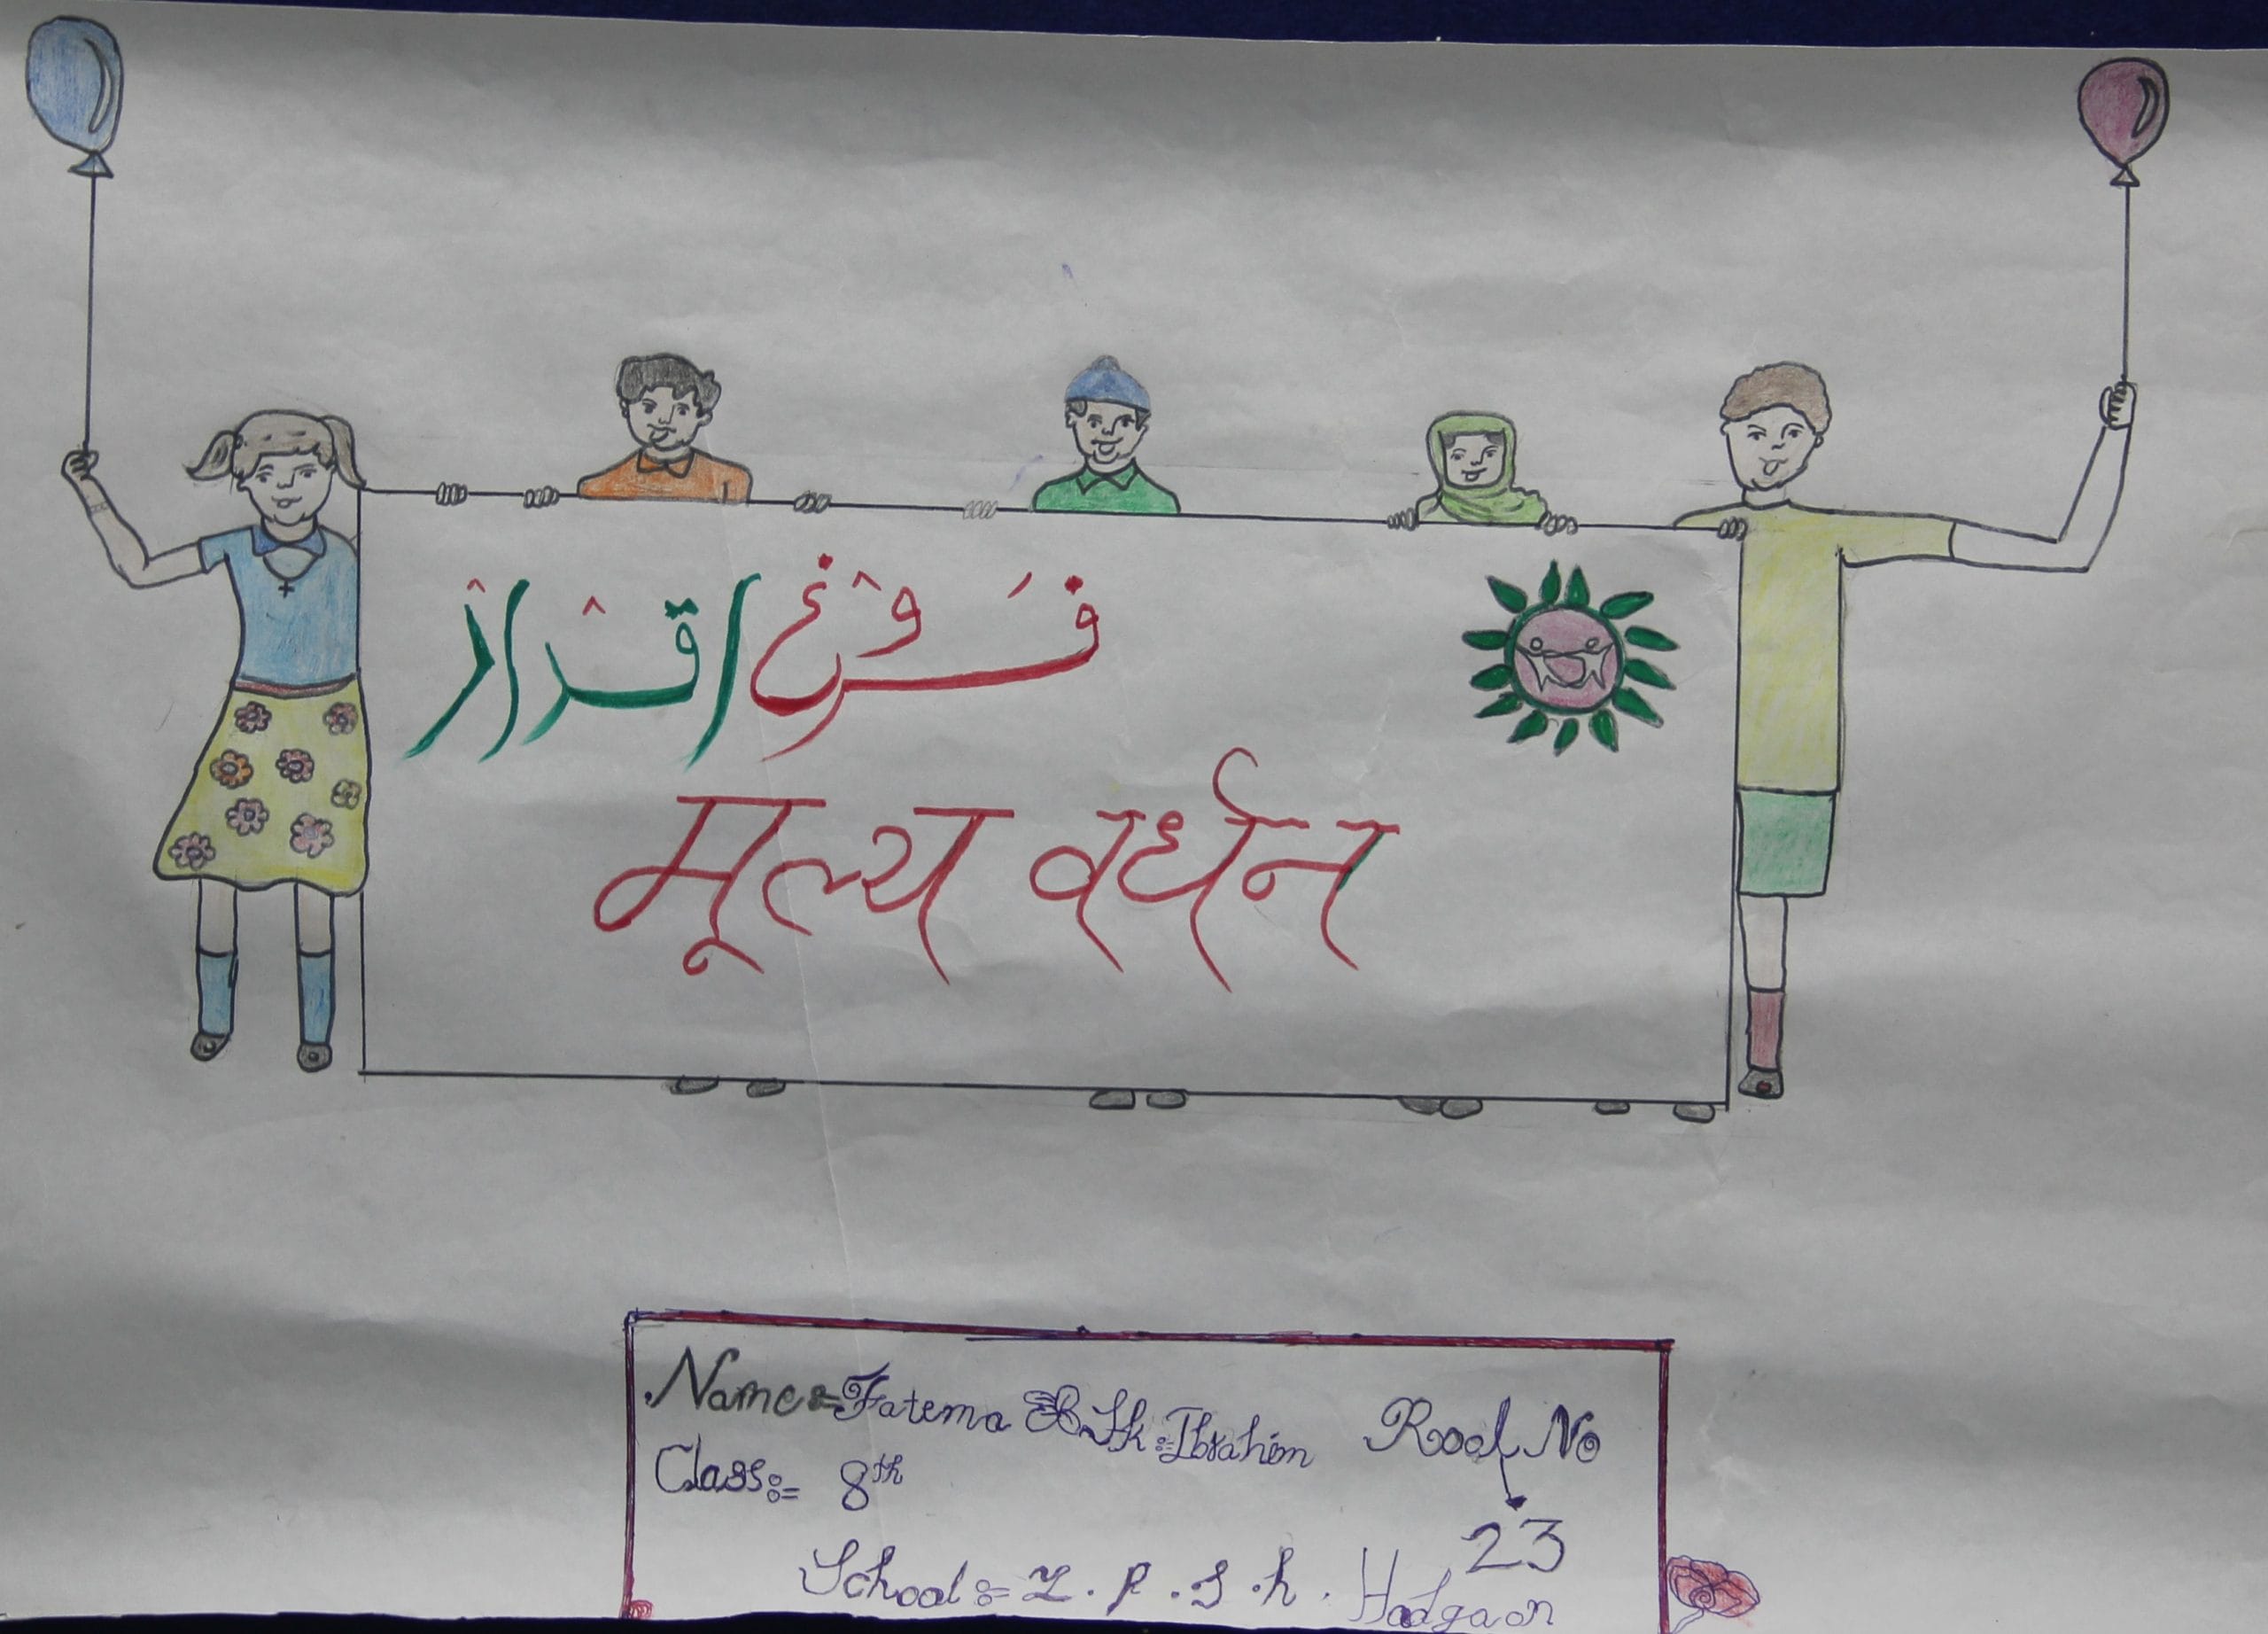 فروغ اقدار
मूल्य वर्धन
Name:= Fatema Sk:=Ibrahim Rool No
Class:= 8th
23
School:= Z.P.S.h. Hadgaon